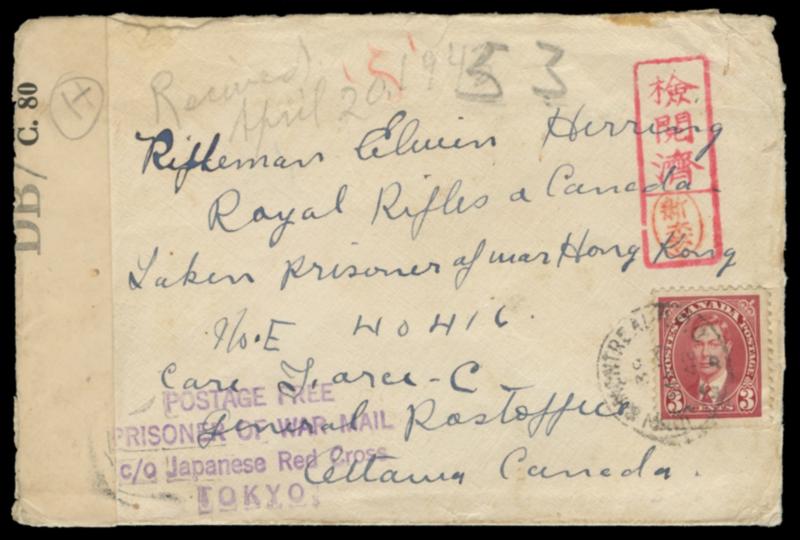 DB/ C. 80
H
Received
April 20, 194
53
Rifleman Elwin Herring
Royal Rifles a Canada
Taken prisoner of war Hong Kong
No. E 40416
Care Force-C
General Postoffice
Ottawa Canada.
檢閲濟
POSTAGE FREE
PRISONER OF WAR MAIL
c/o Japanese Red Cross
TOKYO
MONTREAL
POSTES CANADA POSTAGE
3 CENTS 3